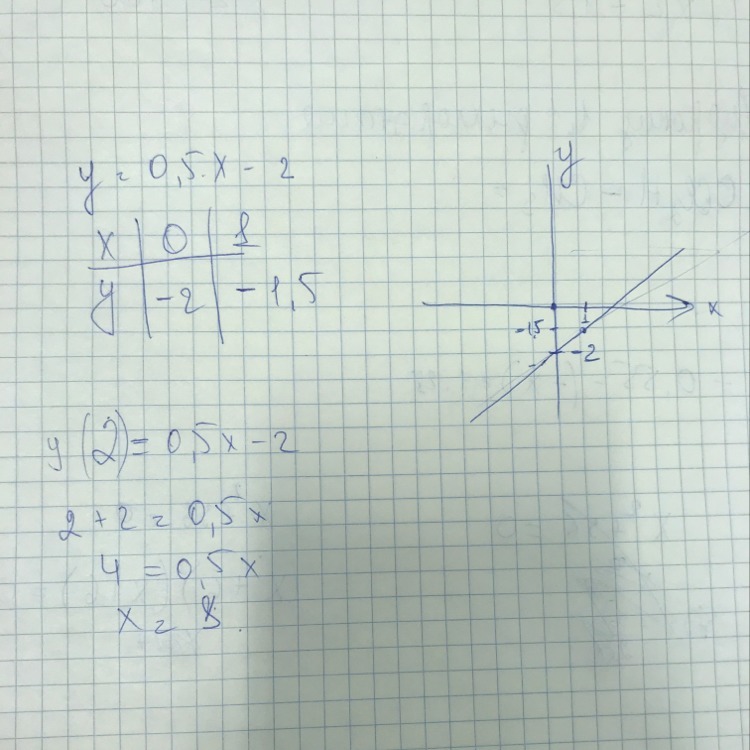 y = 0,5.x - 2
x | 0 | 1
y | -2 | -1,5
y (2) = 0,5x - 2
2 + 2 = 0,5x
4 = 0,5x
x = 8.
y
x
1
-1,5
-2